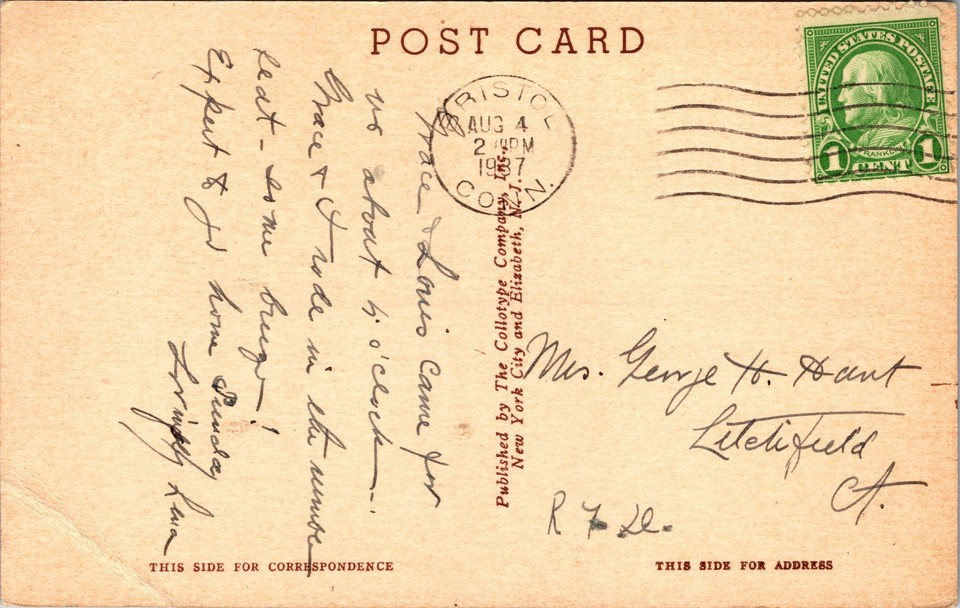 POST CARD
Grace & Louis came for
us about 4 o'clock—
Grace & I rode in the rumble
seat - some bugs!
Expect to go home Sunday
Lovingly Lena
BRISTOL
AUG 4
2 PM
1937
CONN.
UNITED STATES POSTAGE
FRANKLIN
1 CENT 1
Published by The Collotype Company, Inc.,
New York City and Elizabeth, N. J.
Mrs. George H. Hunt
Litchfield
Ct.
R F D.
THIS SIDE FOR CORRESPONDENCE
THIS SIDE FOR ADDRESS